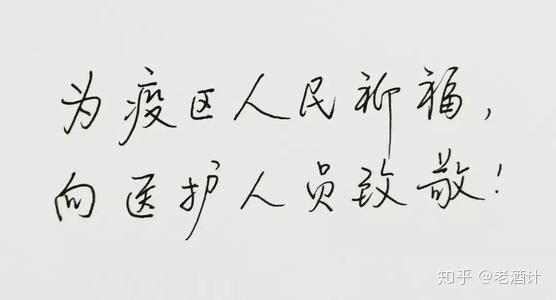 为疫区人民祈福，
向医护人员致敬！
知乎 @老酒计